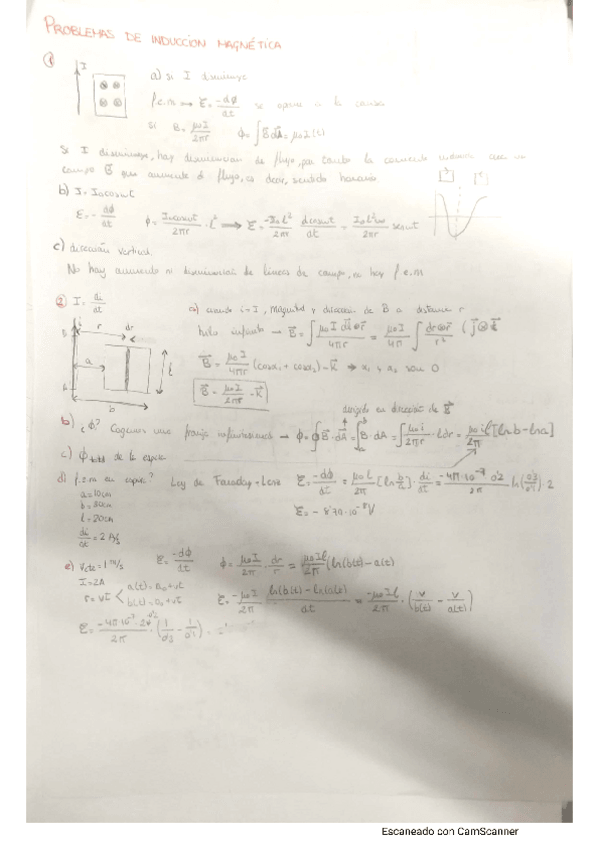 PROBLEMAS DE INDUCCION MAGNÉTICA
① I
a) Si I disminuye
f.e.m → Ɛ = -dϕ/dt se opone a la causa
Si B = μ₀I/2πr ϕ = ∫B dA = μ₀I
Si I disminuye, hay disminucion de flujo, por tanto la corriente inducida crea un
campo B que aumente el flujo, es decir, sentido horario
b) I = I₀coswt
Ɛ = - dϕ/dt ϕ = I₀coswt/2πr · l² → Ɛ = -I₀l²/2πr dcoswt/dt = I₀l²w/2πr senwt
c) dirección vertical
No hay aumento ni disminucion de lineas de campo, no hay f.e.m
② I = di/dt
a) cuando i = I, Magnitud y direccion de B a distancia r
r dr
a l
b
hilo infinito → B = ∫ μ₀I dl⊗r/4πr = μ₀I/4π ∫ dr⊗r/r²
B = μ₀I/4πr (cosα₁ + cosα₂) -K → α₁ y α₂ son 0
B = μ₀I/2πr -K
dirigido en dirección de B
b) ¿ϕ? Cogemos una franja infinitesimal → ϕ = ∮B·dA = ∫B dA = ∫ μ₀i/2πr · ldr = μ₀il/2π [lnb - lna]
c) ϕ total de la espira
d) f.e.m en espira? Ley de Faraday-Lenz Ɛ = -dϕ/dt = μ₀l/2π [ln b/a] · di/dt = -4π·10⁻⁷ 0'2/2π ln(0'3/0'1) · 2
a = 10cm
b = 30cm
l = 20cm
Ɛ = - 8'79·10⁻⁸V
di/dt = 2 A/s
e) Vcte = 1 m/s Ɛ = -dϕ/dt ϕ = μ₀I/2π · dr/r = μ₀Il/2π (ln(b(t) - a(t)
I = 2A
r = vt a(t) = a₀ + vt
b(t) = b₀ + vt
Ɛ = -μ₀I/2π · ln(b(t) - ln(a(t)/dt = -μ₀Il/2π · (v/b(t) - v/a(t))
Ɛ = -4π·10⁻⁷·2·0'2/2π · (1/0'3 - 1/0'1) =
Escaneado con CamScanner